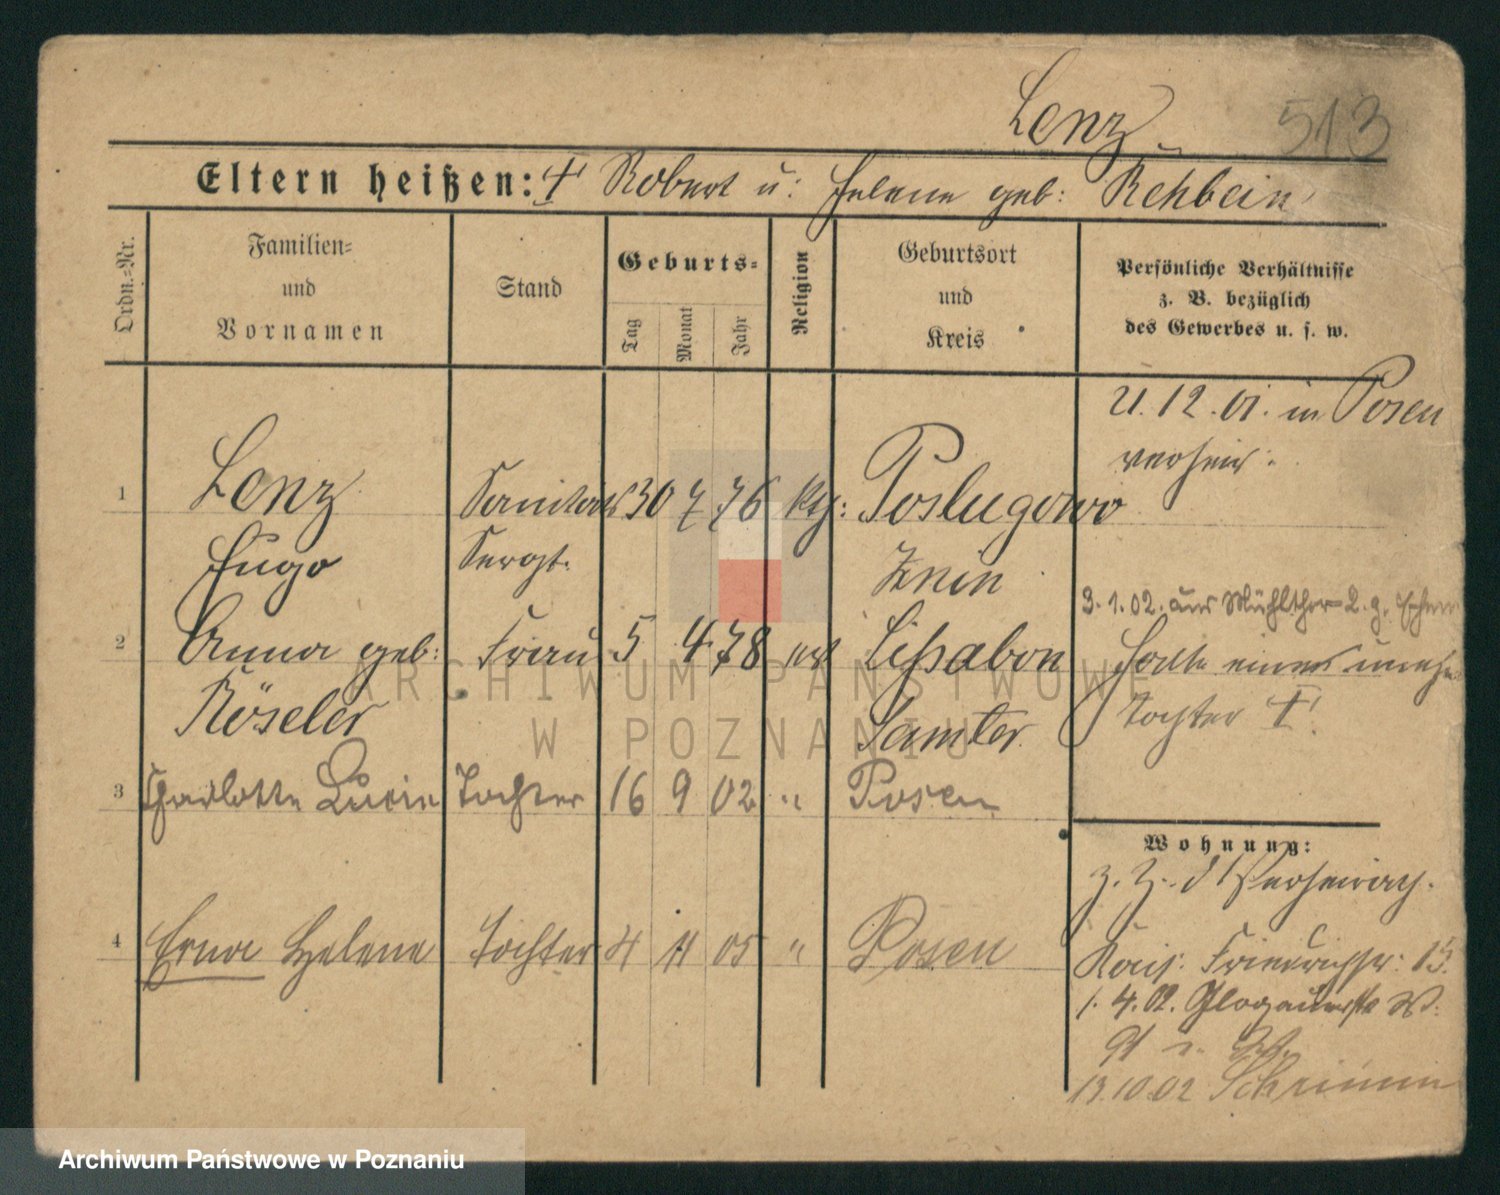 Lenz
513
Eltern heißen: † Robert u: Helene geb: Rehbein
Ordn.=Nr.
Familien=
und
Vornamen
Stand
Geburts=
Tag
Monat
Jahr
Religion
Geburtsort
und
Kreis
Persönliche Verhältnisse
z. B. bezüglich
des Gewerbes u. s. w.
21. 12. 01. in Posen
verheir.
1 Lenz Sanitäts 30 7 76 kth: Poslugowo
Hugo Sergt. Znin
3. 1. 02. aus Mühlthor
2 Anna geb: Frau 5 4 78 Lissabon
Hatte eine
Röseler Samter
Tochter †
3 Charlotte Lucie Tochter 16 9 02 " Posen
Wohnung:
z. Z. Verheirath.
4 Erna Helene Tochter 4 11 05 " Posen
Kais. Friedrichstr: 15.
1. 4. 02. Glogauerstr
13.10.02 Schrimm
ARCHIWUM PAŃSTWOWE
W POZNANIU
Archiwum Państwowe w Poznaniu